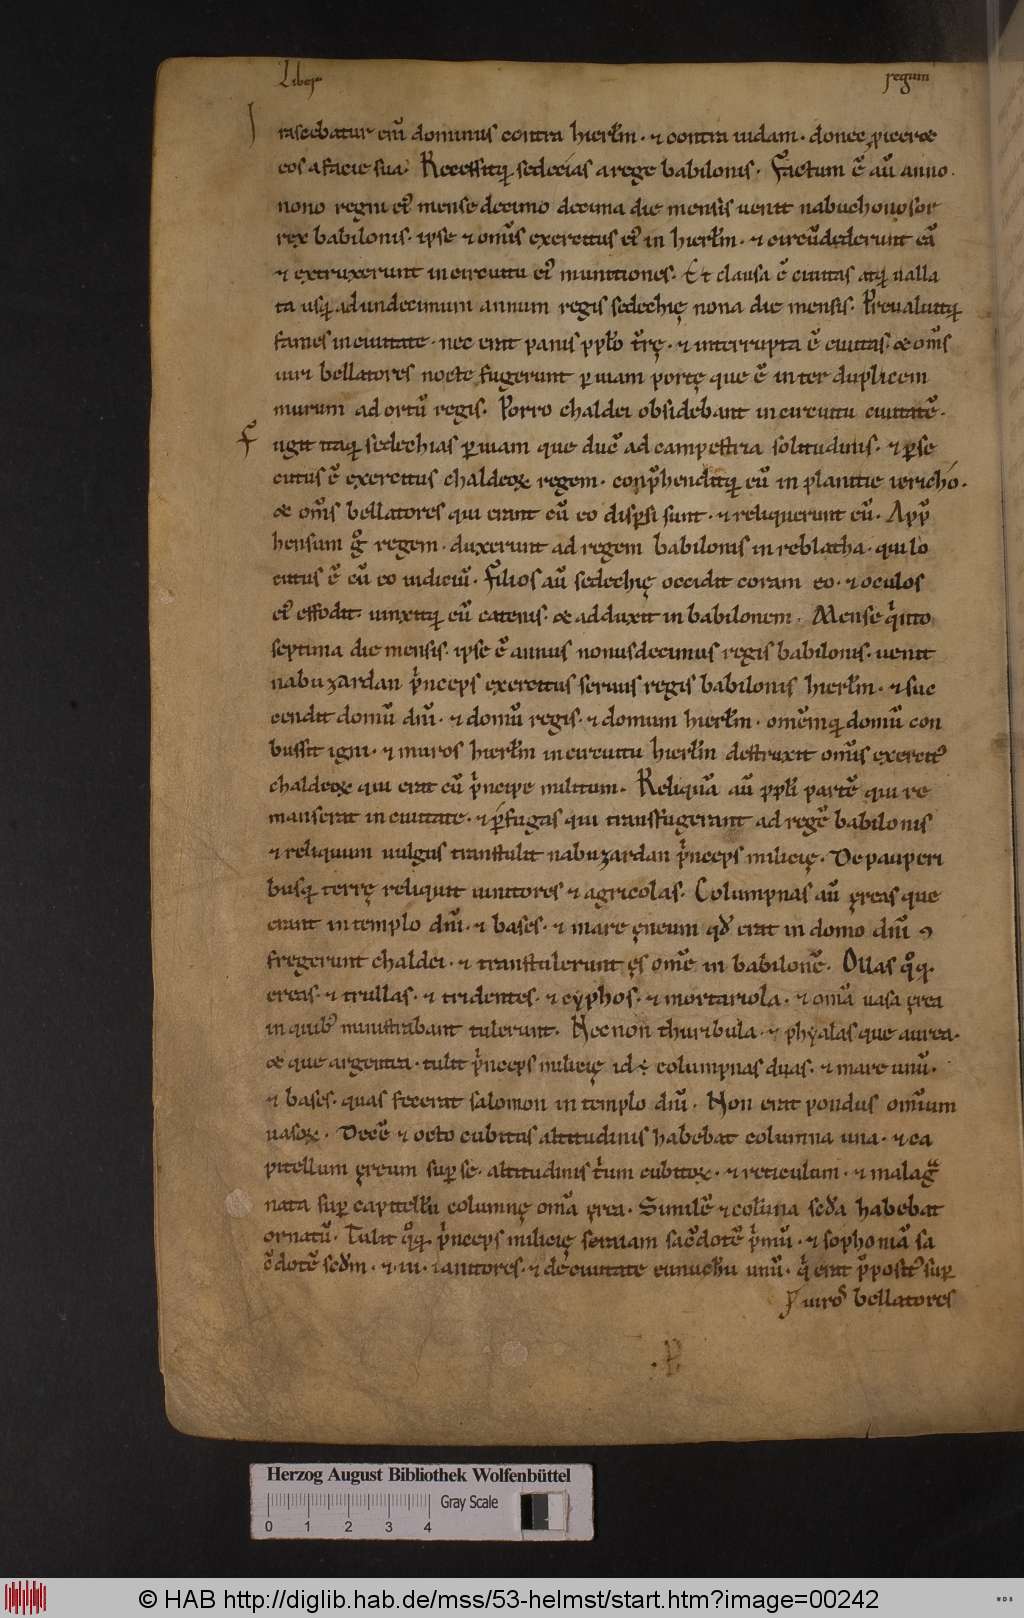 Liber regum
Irascebatur eni̅ dominus contra hierłm · ⁊ contra iudam · donec ꝓiceret
eos a facie sua · Recessitq; sedecias a rege babilonis · Factum e̅ au̅ anno ·
nono regni ei᷒ mense decimo decima die mensis uenit nabuchonosor
rex babilonis · ipse ⁊ om̅s exercitus ei᷒ in hierłm · ⁊ circu̅dederunt ea̅
⁊ extruxerunt in circuitu ei᷒ munitiones · Et clausa e̅ ciuitas atq; ualla
ta usq; ad undecimum annum regis sedechię nona die mensis · Preualuitq;
fames in ciuitate · nec erat panis ppło t̅rę · ⁊ interrupta e̅ ciuitas · & om̅s
uiri bellatores nocte fugerunt ꝑ uiam portę que e̅ inter duplicem
murum ad ortu̅ regis · Porro chaldei obsidebant in circuitu ciuitate̅ ·
Fugit itaq; sedechias ꝑ uiam que duc̅ ad campestria solitudinis · ⁊ ꝑse
cutus e̅ exercitus chaldeoꝝ regem · conp̅henditq; eu̅ in planitie iericho ·
& om̅s bellatores qui erant cu̅ eo disꝑsi sunt · ⁊ reliquerunt eu̅ · App̅
hensum gͦ regem · duxerunt ad regem babilonis in reblatha · qui lo
cutus e̅ cu̅ eo iudiciu̅ · Filios au̅ sedechię occidit coram eo · ⁊ oculos
ei᷒ effodit · uinxitq; eu̅ catenis · & adduxit in babilonem · Mense qͥnto
septima die mensis · ipse e̅ annus nonusdecimus regis babilonis · uenit
nabuzardan pͥnceps exercitus seruus regis babilonis hierłm · ⁊ suc
cendit domu̅ dn̅i · ⁊ domu̅ regis · ⁊ domum hierłm · omne̅mq; domu̅ con
bussit igni · ⁊ muros hierłm in circuitu hierłm destruxit om̅is exercit᷒
chaldeoꝝ qui erat cu̅ pͥncipe militum · Reliqua̅ au̅ ppłi parte̅ qui re
manserat in ciuitate · ⁊ ꝑfugas qui transfugerant ad rege̅ babilonis
⁊ reliquum uulgus transtulit nabuzardan pͥnceps milicię · De pauperi
busq; terrę reliquit uinitores ⁊ agricolas · Columpnas au̅ ęreas que
erant in templo dn̅i · ⁊ bases · ⁊ mare ęneum qd̅ erat in domo dn̅i ꝯ
fregerunt chaldei · ⁊ transtulerunt ęs om̅e in babilone̅ · Ollas qͦq;
ereas · ⁊ trullas · ⁊ tridentes · ⁊ cyphos · ⁊ mortariola · ⁊ om̅a uasa ęrea
in quib᷒ ministrabant tulerunt · Necnon thuribula · ⁊ phyalas que aurea ·
& que argentea · tulit pͥnceps milicię id ÷ columpnas duas · ⁊ mare unu̅ ·
⁊ bases · quas fecerat salomon in templo dn̅i · Non erat pondus omnium
uasoꝝ · Dece̅ ⁊ octo cubitus altitudinis habebat columna una · ⁊ ca
pitellum ęreum suꝑ se · altitudinis tͥum cubitoꝝ · ⁊ reticulum · ⁊ malagͣ
nata suꝑ capitellu̅ columnę om̅a ęrea · Simile̅ ⁊ coluna sed̅a habebat
ornatu̅ · Tulit qͦq; pͥnceps milicię seraiam sac̅dote̅ pͥmu̅ · ⁊ sophonia̅ sa
c̅dote̅ sed̅m · ⁊ · iii · ianitores · ⁊ de ciuitate eunuchu̅ unu̅ · qͥ erat p̅posit᷒ suꝑ
uiros bellatores
Herzog August Bibliothek Wolfenbüttel
Gray Scale
0 1 2 3 4
© HAB http://diglib.hab.de/mss/53-helmst/start.htm?image=00242